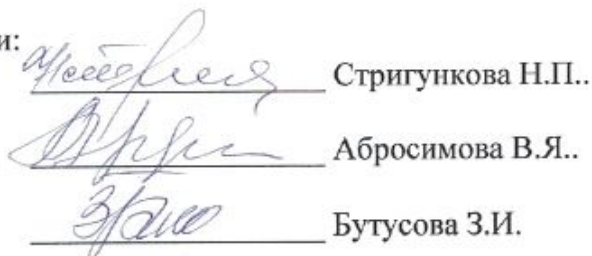 и:
Стригункова Н.П..
Абросимова В.Я..
Бутусова З.И.